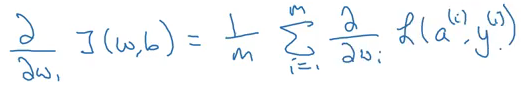 ∂/∂w₁ J(w,b) = 1/m ∑_{i=1}^{m} ∂/∂w₁ ℒ(a⁽ⁱ⁾, y⁽ⁱ⁾)